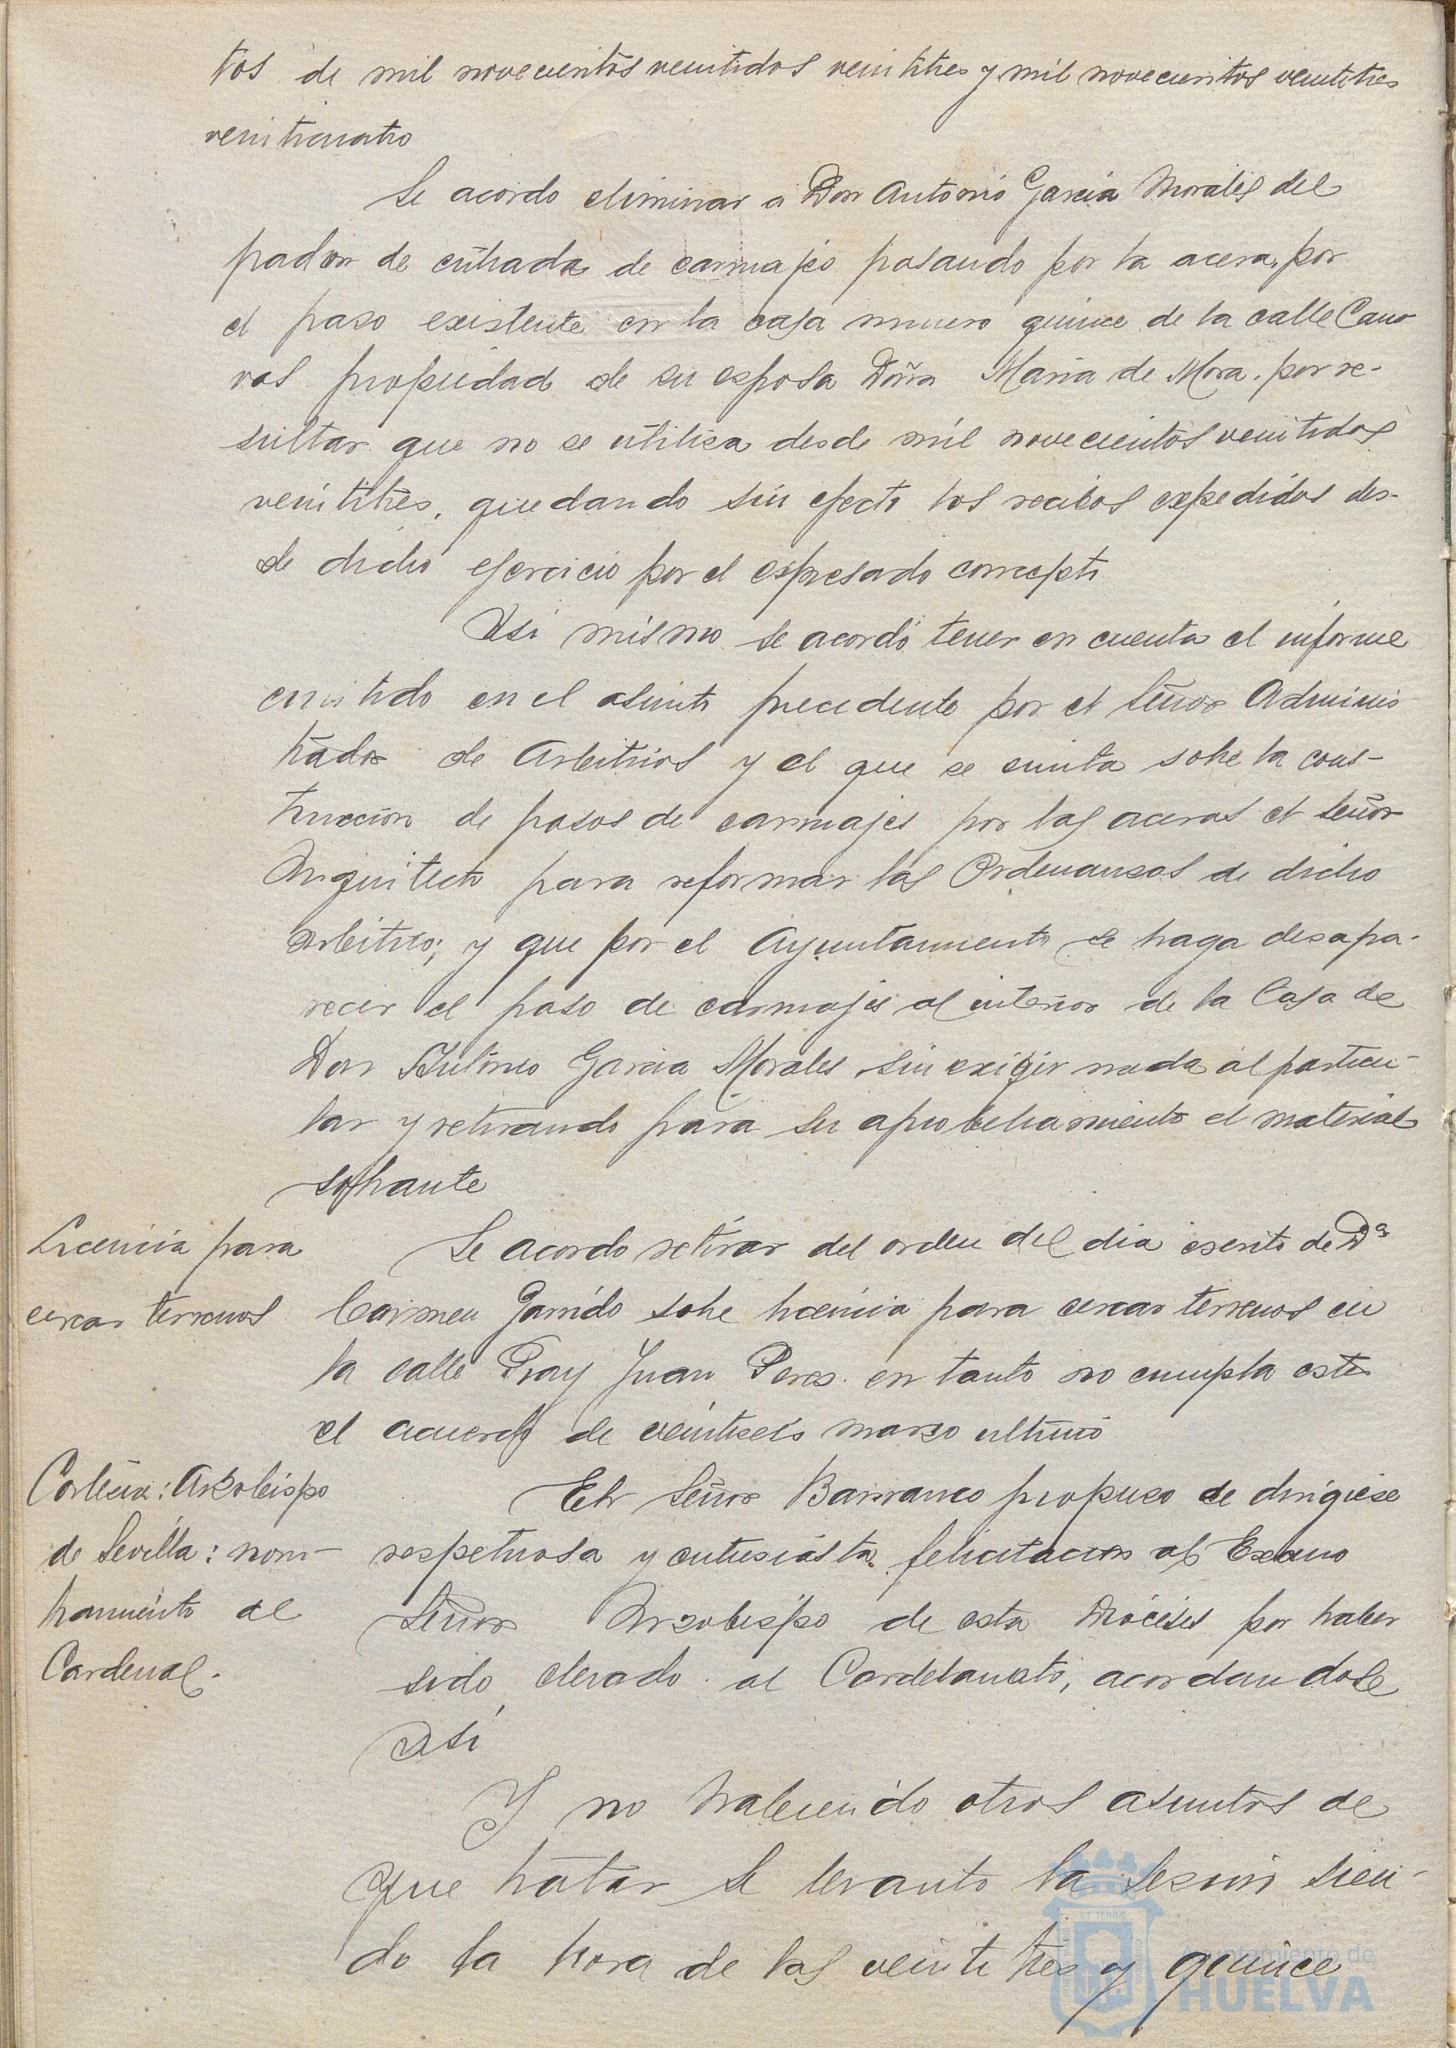 tos de mil novecientos veintidos veintitres y mil novecientos veintitres
veinticuatro
Se acordo eliminar a Don Antonio Garcia Morales del
padron de entrada de carruajes pasando por la acera, por
el paso existente en la casa numero quince de la calle Cano-
vas propiedad de su esposa Doña Maria de Mora, por re-
sultar que no se utiliza desde mil novecientos veintidos
veintitres, quedando sin efecto los recibos expedidos des-
de dicho ejercicio por el expresado concepto
Asi mismo se acordó tener en cuenta el informe
emitido en el asunto precedente por el Señor Adminis-
trador de Arbitrios y el que se emita sobre la cons-
truccion de pasos de carruajes por las aceras el Señor
Arquitecto para reformar las Ordenanzas de dicho
arbitrio; y que por el Ayuntamiento se haga desapa-
recer el paso de carruajes al interior de la Casa de
Don Antonio Garcia Morales sin exigir nada al particu-
lar y retirando para su aprobechamiento el material
sobrante
Licencia para
cercar terrenos
Se acordo retirar del orden del dia escrito de Dª
Carmen Garrido sobre licencia para cercar terrenos en
la calle Fray Juan Perez en tanto no cumpla este
el acuerdo de veintiseis marzo ultimo
Cortesia: Arzobispo
de Sevilla: nom-
bramiento de
Cardenal.
El Señor Barranco propuso se dirigiese
respetuosa y entusiasta felicitacion al Excmo
Señor Arzobispo de esta Diócesis por haber
sido elevado al Cardelanato, acordandose
asi
Y no habiendo otros asuntos de
que tratar se levanto la sesion sien-
do la hora de las veinte tres y quince
Ayuntamiento de
HUELVA